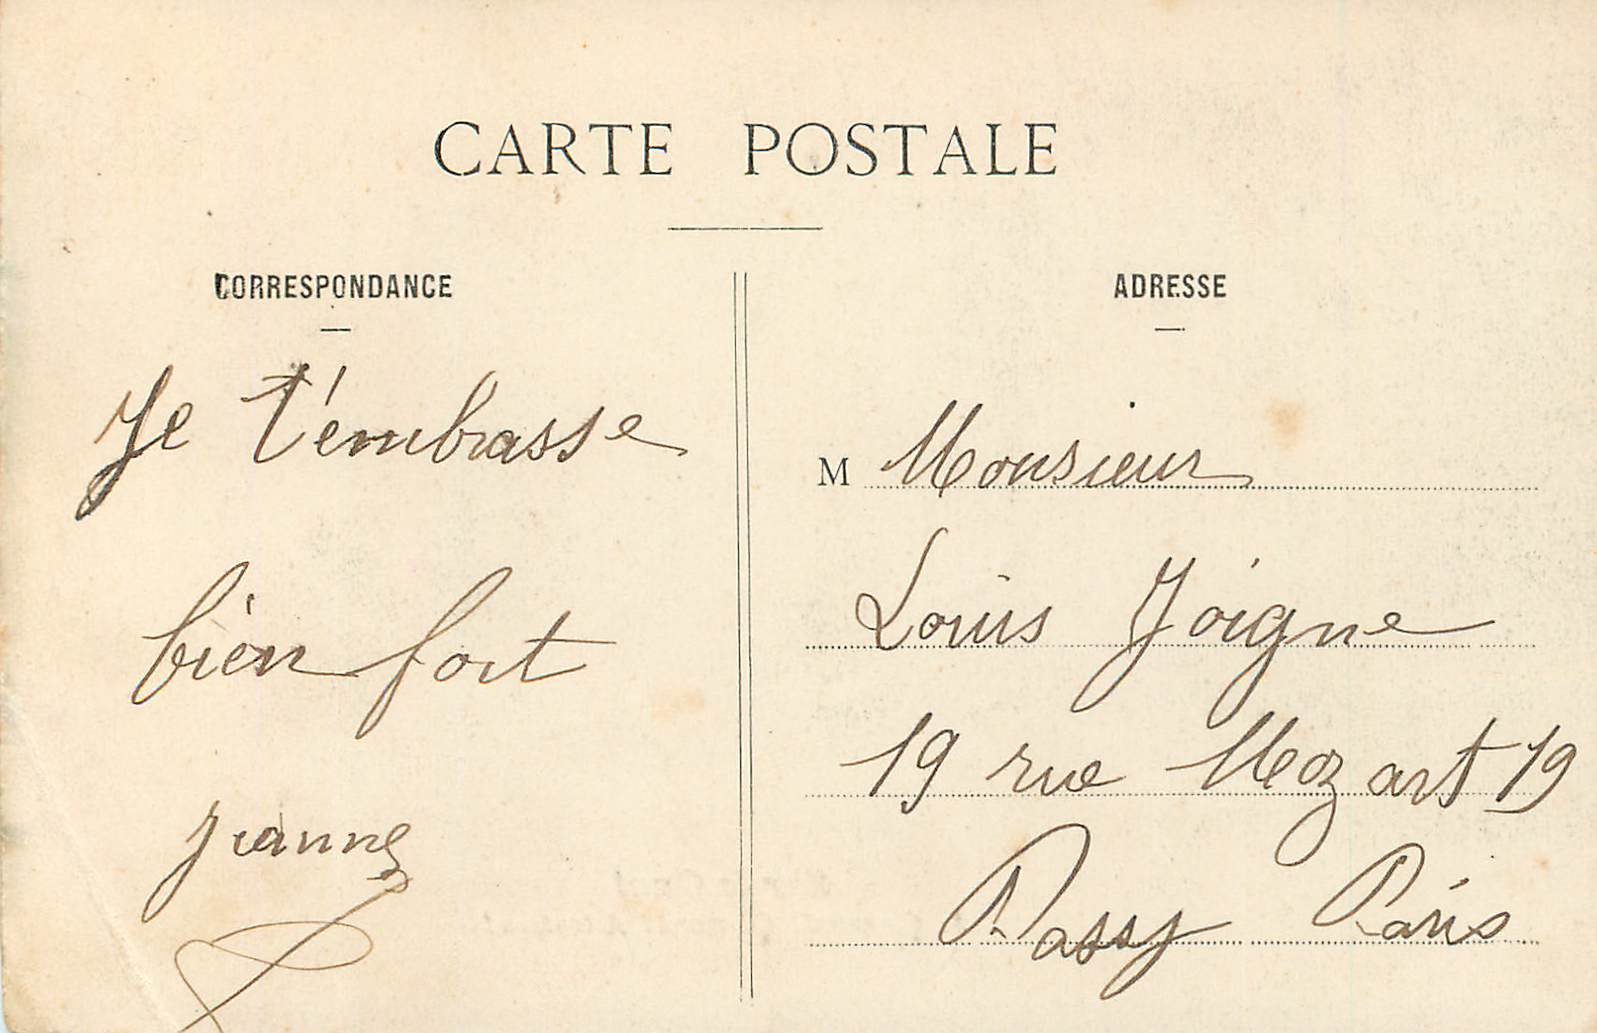 CARTE POSTALE
CORRESPONDANCE
Je t'embrasse
bien fort
Jeanne
ADRESSE
M Monsieur
Louis Joigne
19 rue Mozart 19
Passy Paris